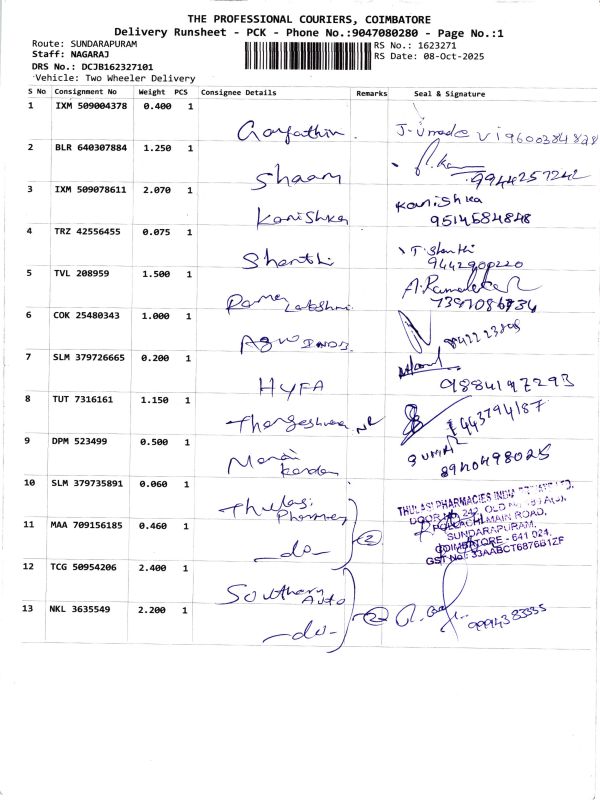 THE PROFESSIONAL COURIERS, COIMBATORE
Delivery Runsheet - PCK - Phone No.:9047080280 - Page No.:1
Route: SUNDARAPURAM
Staff: NAGARAJ
DRS No.: DCJB162327101
Vehicle: Two Wheeler Delivery
RS No.: 1623271
RS Date: 08-Oct-2025
S No Consignment No Weight PCS Consignee Details Remarks Seal & Signature
1 IXM 509004378 0.400 1
2 BLR 640307884 1.250 1 Shaam 9944257242
3 IXM 509078611 2.070 1 Kanishka Kanishka
9514684848
4 TRZ 42556455 0.075 1 Shanthi T. Shanthi
9442900220
5 TVL 208959 1.500 1 Rama Lakshmi
6 COK 25480343 1.000 1
7 SLM 379726665 0.200 1 HYFA 9884197293
8 TUT 7316161 1.150 1
9 DPM 523499 0.500 1
8940498025
10 SLM 379735891 0.060 1 Thulasi Pharmacy
THULASI PHARMACIES INDIA PRIVATE LTD.
POLLACHI MAIN ROAD,
SUNDARAPURAM,
COIMBATORE - 641 024.
GST No: 33AABCT6876B1ZF
11 MAA 709156185 0.460 1 -do- 2
12 TCG 50954206 2.400 1 Southern Auto
13 NKL 3635549 2.200 1 -do- 2